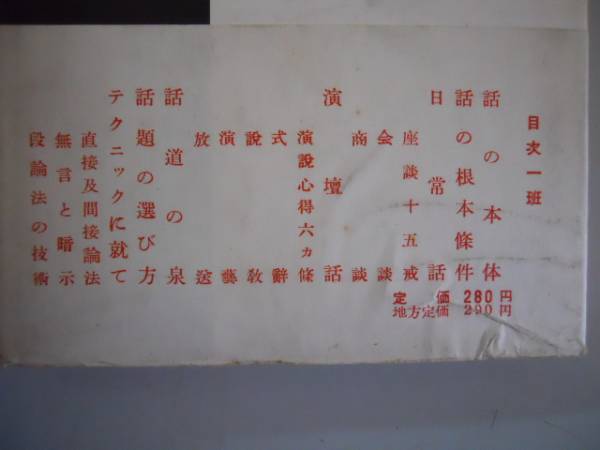 目次一班
話の本体
話の根本條件
日常話
座談十五戒
会談
商談
演壇話
演説心得六カ條
式辭
説教
演藝
放送
話道の泉
話題の選び方
テクニックに就て
直接及間接論法
無言と暗示
段論法の技術
定価 280円
地方定価 290円